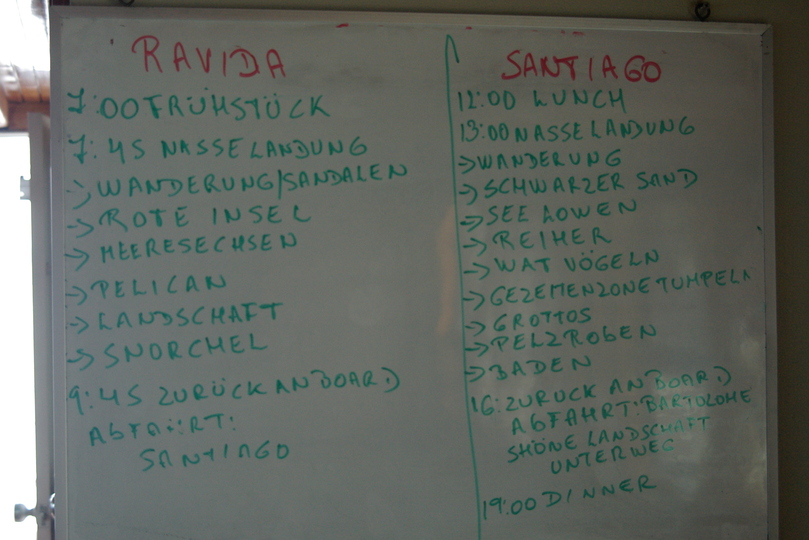 RAVIDA
7:00 FRÜHSTÜCK
7:45 NASSE LANDUNG
→ WANDERUNG/SANDALEN
→ ROTE INSEL
→ MEERESECHSEN
→ PELICAN
→ LANDSCHAFT
→ SNORCHEL
9:45 ZURÜCK AN BOARD
ABFAHRT:
SANTIAGO
SANTIAGO
12:00 LUNCH
13:00 NASSE LANDUNG
→ WANDERUNG
→ SCHWARZER SAND
→ SEE LOWEN
→ REIHER
→ WAT VÖGELN
→ GEZEMENZONE TUMPELN
→ GROTTOS
→ PELZROBEN
→ BADEN
16: ZURUCK AN BOARD
ABFAHRT: BARTOLOME
SHÖNE LANDSCHAFT
UNTERWEG
19:00 DINNER